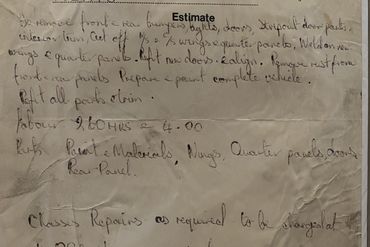 Estimate
To remove front & rear bumpers, lights, doors, Stripout door parts,
interior trim, Cut off wings & quarter panels, Weld on new
wings & quarter panels. Refit new doors & align. Remove rust from
front & rear panels Prepare & paint complete vehicle.
Refit all parts & trim.
Labour HRS @ 4.00
Parts Paint & Materials, Wings, Quarter panels, doors
Rear Panel.
Chassis Repairs as required to be charged at